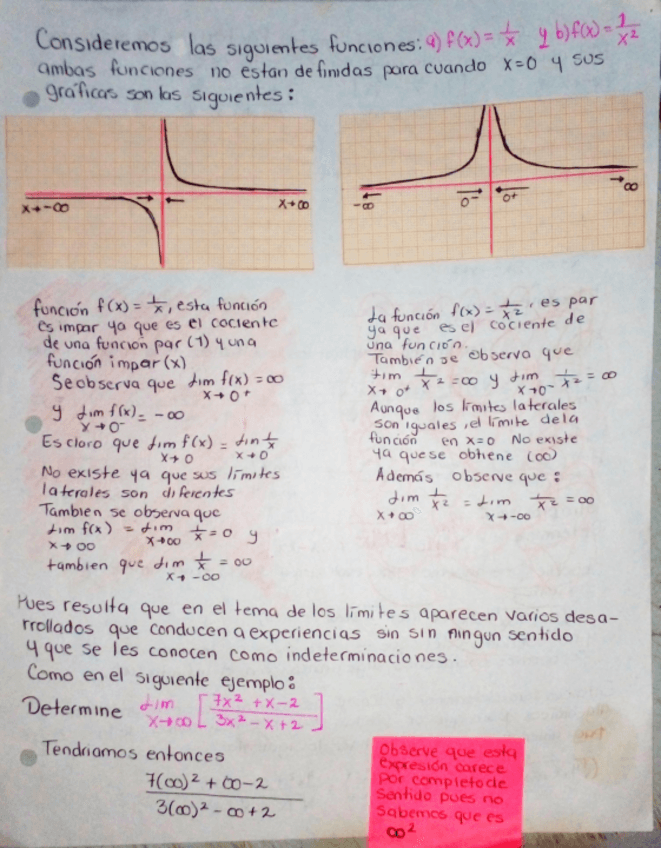 Consideremos las siguientes funciones: a) f(x) = 1/x y b) f(x) = 1/x²
ambas funciones no estan definidas para cuando x=0 y sus
gráficas son las siguientes:
x→-∞
x→∞
-∞
0⁻
0⁺
∞
función f(x) = 1/x, esta función
es impar ya que es el cociente
de una función par (1) y una
función impar (x)
Se observa que lim f(x) = ∞
x→0⁺
y lim f(x) = -∞
x→0⁻
Es claro que lim f(x) = lim 1/x
x→0 x→0
No existe ya que sus límites
laterales son diferentes
Tambien se observa que
lim f(x) = lim 1/x = 0 y
x→∞ x→∞
tambien que lim 1/x = ∞
x→-∞
La función f(x) = 1/x², es par
ya que es el cociente de
una función.
También se observa que
lim 1/x² = ∞ y lim 1/x² = ∞
x→0⁺ x→0⁻
Aunque los límites laterales
son iguales, el límite de la
función en x=0 No existe
ya que se obtiene (∞)
Además observe que:
lim 1/x² = lim 1/x² = ∞
x→∞ x→-∞
Pues resulta que en el tema de los límites aparecen varios desa-
rrollados que conducen a experiencias sin sin ningun sentido
y que se les conocen como indeterminaciones.
Como en el siguiente ejemplo:
Determine lim [7x² + x - 2 / 3x² - x + 2]
x→∞
Tendriamos entonces
7(∞)² + ∞ - 2
3(∞)² - ∞ + 2
Observe que esta
expresión carece
por completo de
sentido pues no
sabemos que es
∞²